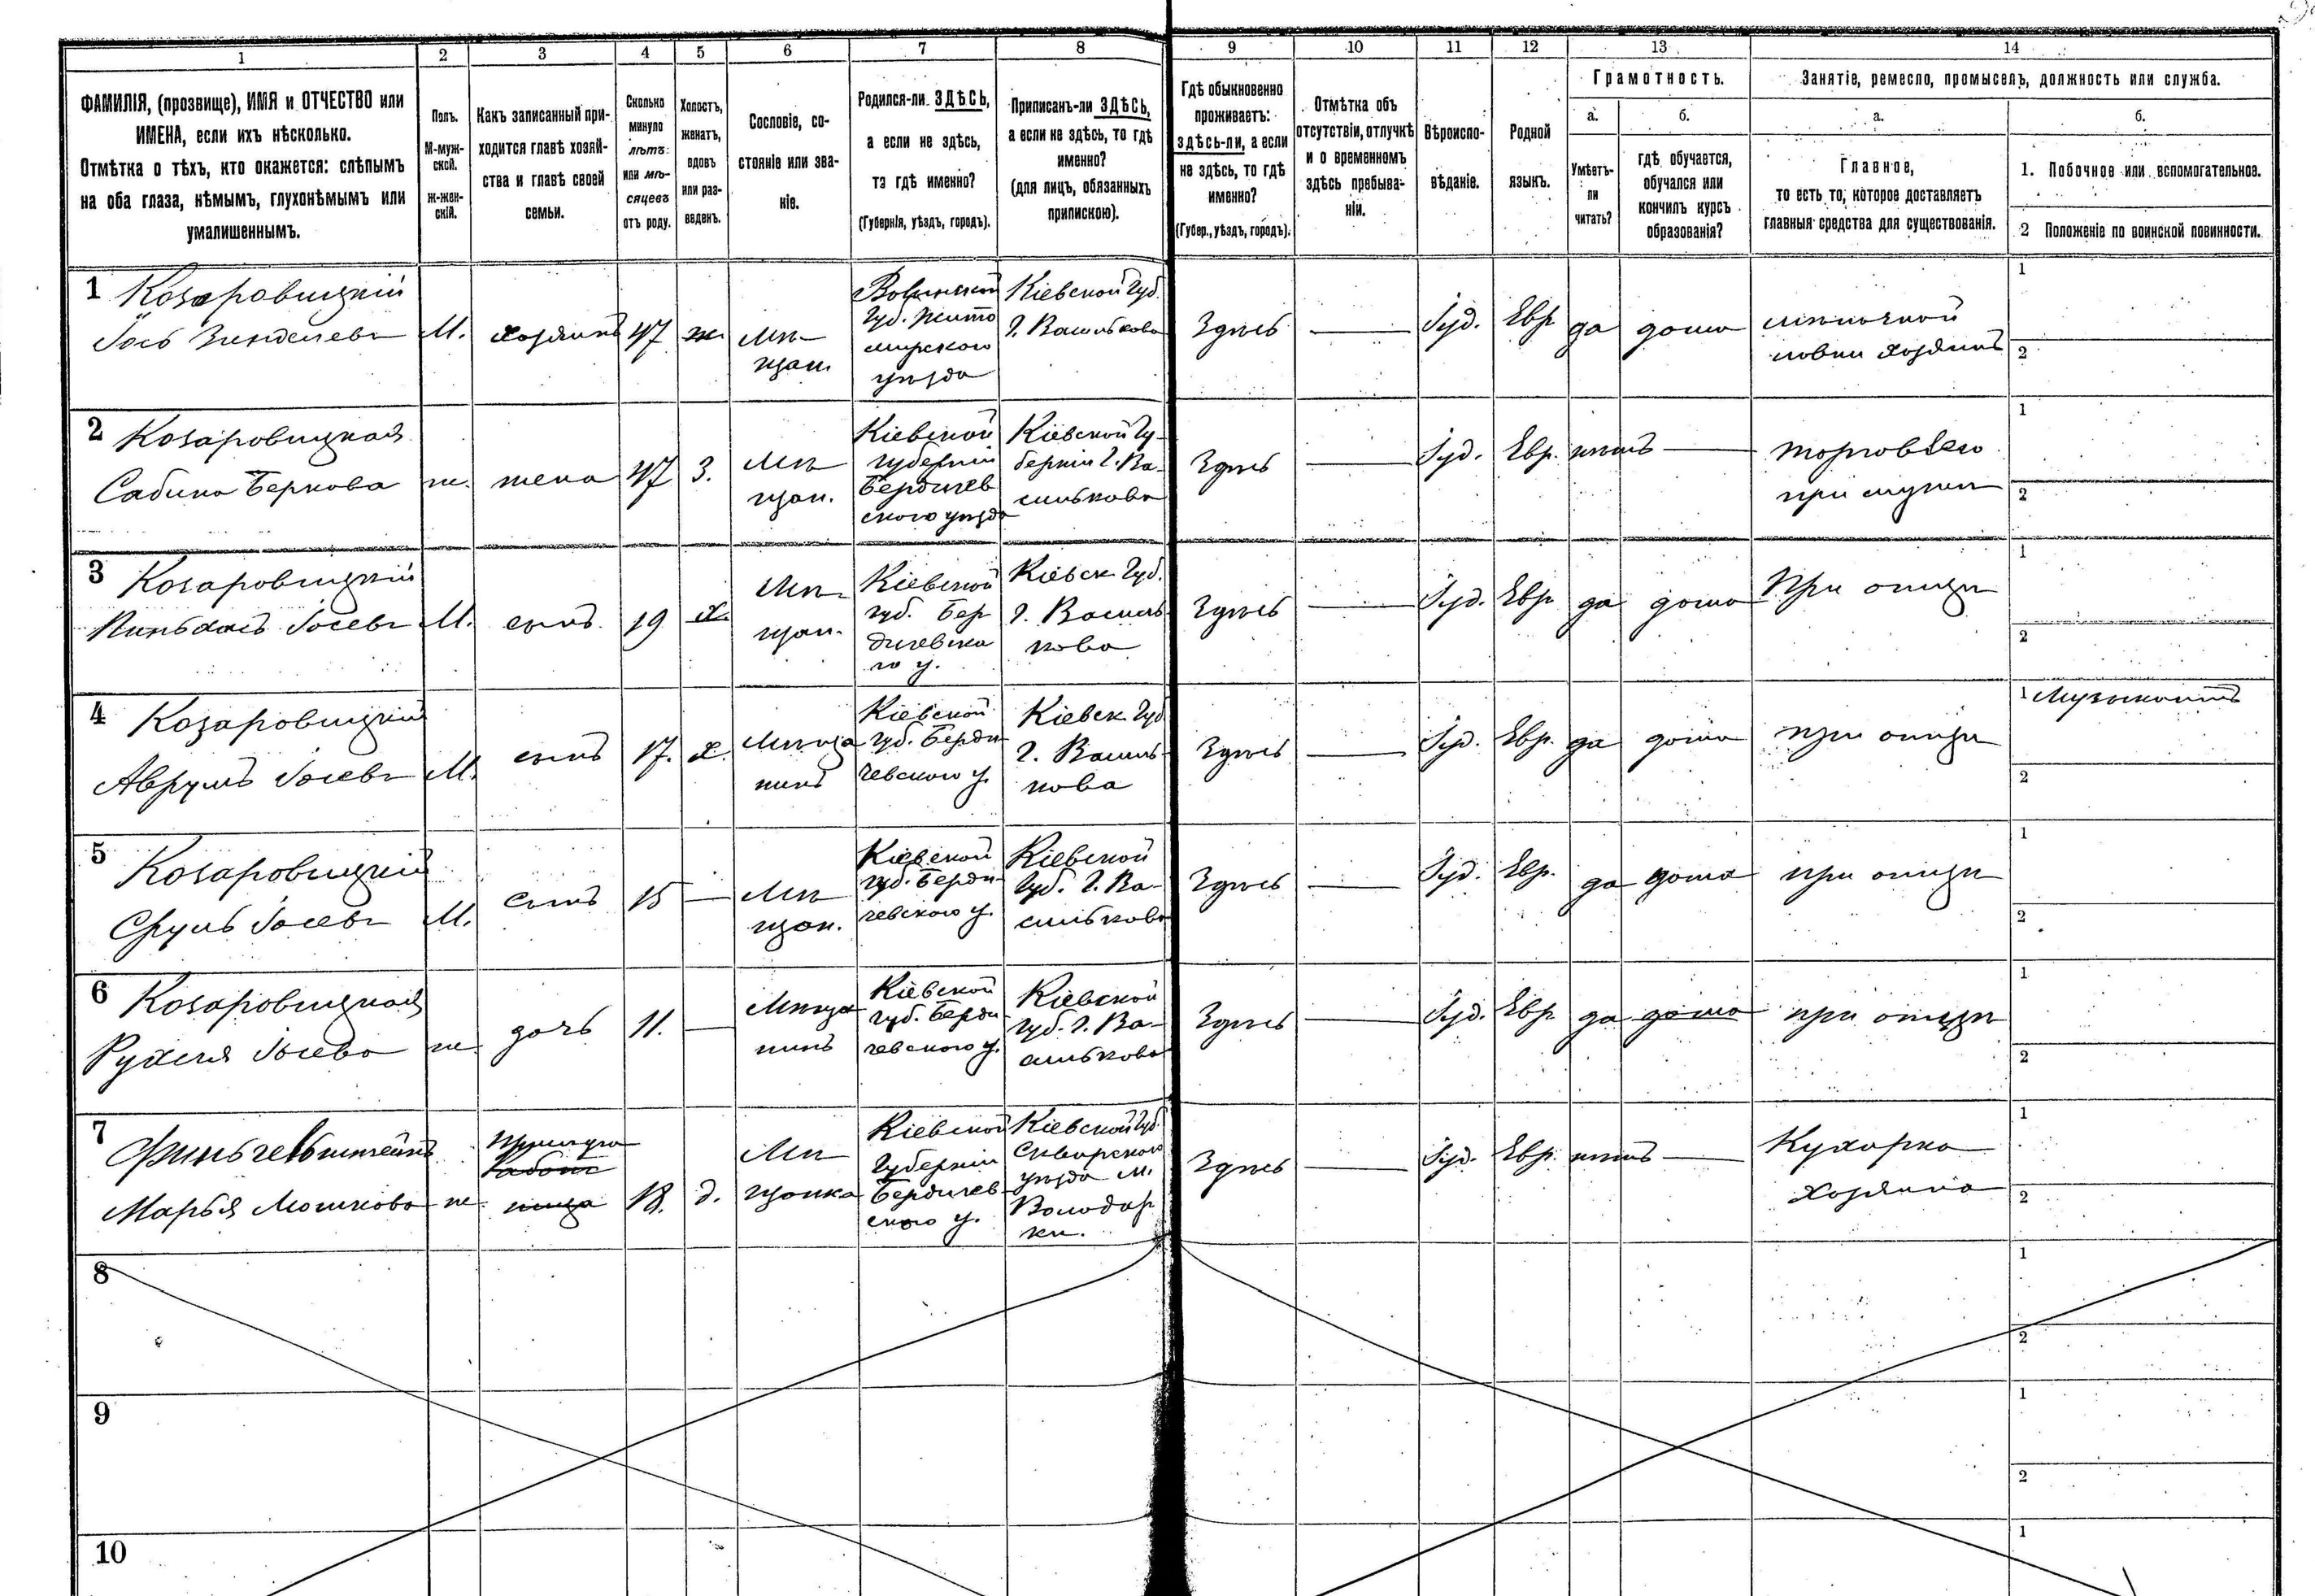 1
2
3
4
5
6
7
8
9
10
11
12
13
14
ФАМИЛІЯ, (прозвище), ИМЯ и ОТЧЕСТВО или
ИМЕНА, если ихъ нѣсколько.
Отмѣтка о тѣхъ, кто окажется: слѣпымъ
на оба глаза, нѣмымъ, глухонѣмымъ или
умалишеннымъ.
Полъ.
М-муж-
ской.
ж-жен-
скій.
Какъ записанный при-
ходится главѣ хозяй-
ства и главѣ своей
семьи.
Сколько
минуло
лѣтъ
или мѣ-
сяцевъ
отъ роду.
Холостъ,
женатъ,
вдовъ
или раз-
веденъ.
Сословіе, со-
стояніе или зва-
ніе.
Родился-ли ЗДѢСЬ,
а если не здѣсь,
то гдѣ именно?
(Губернія, уѣздъ, городъ).
Приписанъ-ли ЗДѢСЬ,
а если не здѣсь, то гдѣ
именно?
(для лицъ, обязанныхъ
припискою).
Гдѣ обыкновенно
проживаетъ:
здѣсь-ли, а если
не здѣсь, то гдѣ
именно?
(Губер., уѣздъ, городъ).
Отмѣтка объ
отсутствіи, отлучкѣ
и о временномъ
здѣсь пребыва-
ніи.
Вѣроиспо-
вѣданіе.
Родной
языкъ.
Грамотность.
а.
Умѣетъ-
ли
читать?
б.
гдѣ обучается,
обучался или
кончилъ курсъ
образованія?
Занятіе, ремесло, промыселъ, должность или служба.
а.
Главное,
то есть то, которое доставляетъ
главныя средства для существованія.
б.
1. Побочное или вспомогательное.
2 Положеніе по воинской повинности.
1
Козаровицкій
Іось Зинделевъ
М.
хозяинъ
47
ж.
Мѣ-
щан.
Волынской
Губ. Жито
мирскаго
уѣзда
Кіевской Губ.
г. Василькова
Здѣсь
Іуд.
Евр
да
дома
лавки хозяинъ
1
2
2
Козаровицкая
Сабина Беркова
ж.
жена
47
З.
Мѣ
щан.
Кіевской
губерніи
Бердичев
скаго уѣзда
Кіевской Гу-
берніи г. Ва-
силькова
Здѣсь
Іуд.
Евр.
нѣтъ
при мужи
1
2
3
Козаровицкій
Пинхасъ Іосевъ
М.
сынъ
19
х.
Мѣ-
щан.
Кіевской
губ. Бер
дичевска
го у.
Кіевск. Губ.
г. Василь
кова
Здѣсь
Іуд.
Евр
да
дома
При отцѣ
1
2
4
Козаровицкій
Аврумъ Іосевъ
М.
сынъ
17.
х.
Мѣща
нинъ
Кіевской
губ. Берди
чевскаго у.
Кіевск. Губ
г. Василь-
кова
Здѣсь
Іуд.
Евр.
да
дома
при отцѣ
1 Музыкантъ
2
5
Козаровицкій
Сруль Іосевъ
М.
сынъ
15
Мѣ
щан.
Кіевской
губ. Берди-
чевскаго у.
Кіевской
Губ. г. Ва-
силькова
Здѣсь
Іуд.
Евр.
да
дома
при отцѣ
1
2
6
Козаровицкая
Рухля Іосева
ж
дочь
11.
Мѣща
нинъ
Кіевской
губ. Берди
чевскаго у.
Кіевской
Губ. г. Ва-
силькова
Здѣсь
Іуд.
Евр
да
дома
при отцѣ
1
2
7
Марья Мошкова
ж.
Прислуга
Работ
ница
18.
д.
Мѣ
щанка
Кіевской
Губерніи
Бердичев
скаго у.
Кіевской Губ.
Сквирскаго
уѣзда м.
Володар
ки.
Здѣсь
Іуд.
Евр.
нѣтъ
Кухарка
хозяина
1
2
8
1
2
9
1
2
10
1